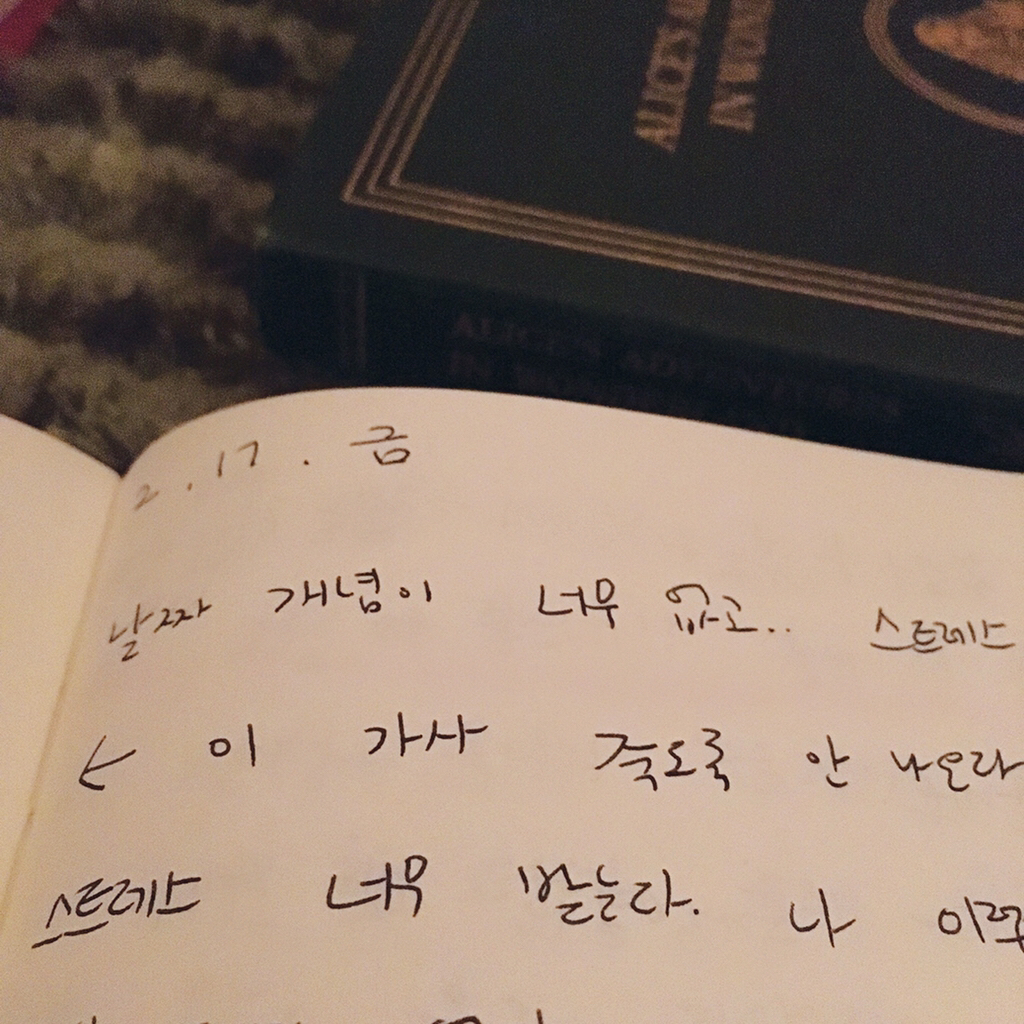 ALICE'S A
IN WOND
ALICE'S ADVENTURES
IN WOND
2.17. 금
날짜 개념이 너무 없고.. 스트레스
← 이 가사 죽도록 안 나오라
스트레스 너무 받는다. 나 이